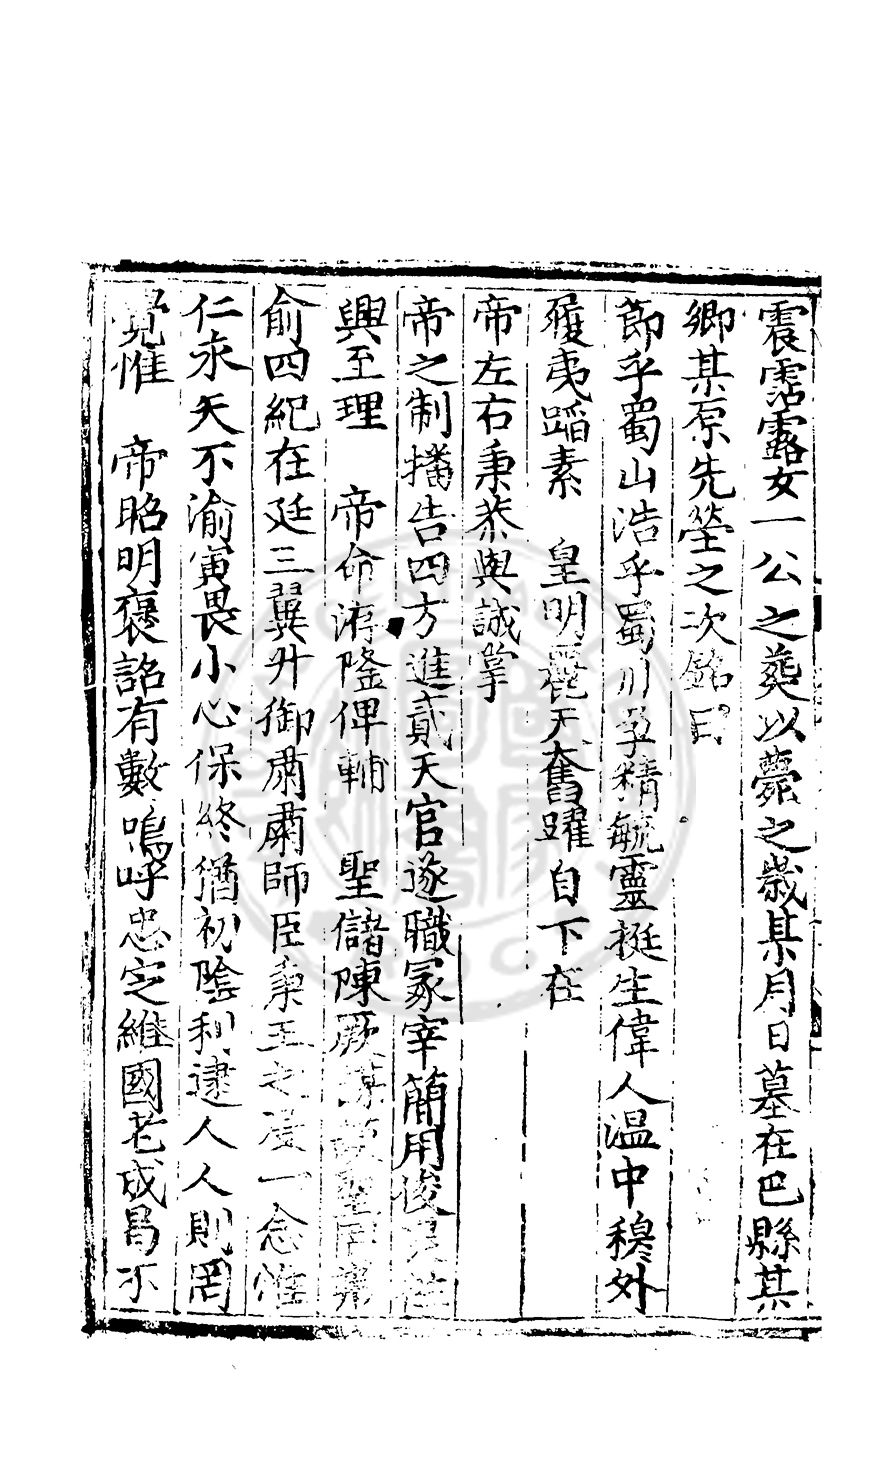 震霑露女一公之葬以薨之歲某月日墓在巴縣某
鄉某原先塋之次銘曰
節乎蜀山浩乎蜀川孕精毓靈挺生偉人温中穆外
履夷蹈素　皇明麗天奮躍自下在
帝左右秉恭與誠掌
帝之制播告四方進貳天官遂職冢宰簡用俊
興至理　帝命洊隆俾輔　聖儲陳厥
俞四紀在廷三翼升御肅肅師臣秉玉之一念惟
仁永矢不渝寅畏小心保終猶初陰利逮人人則罔
覺惟　帝昭明褒詔有數嗚呼忠定維國老成曷不